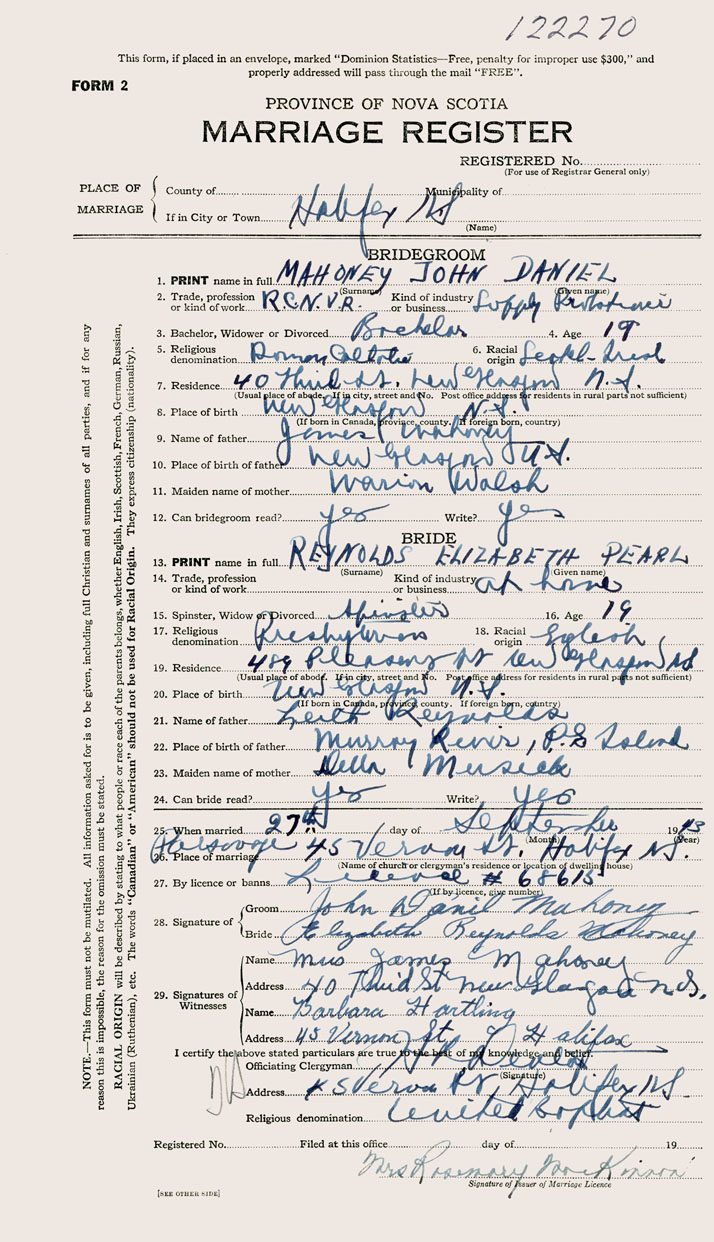 122270
This form, if placed in an envelope, marked “Dominion Statistics—Free, penalty for improper use $300,” and
properly addressed will pass through the mail “FREE”.
FORM 2
PROVINCE OF NOVA SCOTIA
MARRIAGE REGISTER
REGISTERED No.
(For use of Registrar General only)
PLACE OF MARRIAGE
County of Municipality of
If in City or Town Halifax NS
(Name)
BRIDEGROOM
1. PRINT name in full MAHONEY JOHN DANIEL
(Surname) (Given name)
2. Trade, profession or kind of work R.C.N.V.R. Kind of industry or business Supply
3. Bachelor, Widower or Divorced Bachelor 4. Age 19
5. Religious denomination Roman Catholic 6. Racial origin
7. Residence 40 Third St. New Glasgow N.S.
(Usual place of abode. If in city, street and No. Post office address for residents in rural parts not sufficient)
8. Place of birth New Glasgow N.S.
(If born in Canada, province, county. If foreign born, country)
9. Name of father James Mahoney
10. Place of birth of father New Glasgow N.S.
11. Maiden name of mother Marion Walsh
12. Can bridegroom read? yes Write? yes
BRIDE
13. PRINT name in full REYNOLDS ELIZABETH PEARL
(Surname) (Given name)
14. Trade, profession or kind of work Kind of industry or business at home
15. Spinster, Widow or Divorced Spinster 16. Age 19
17. Religious denomination Presbyterian 18. Racial origin English
19. Residence 489 Pleasant St New Glasgow NS
(Usual place of abode. If in city, street and No. Post office address for residents in rural parts not sufficient)
20. Place of birth New Glasgow N.S.
(If born in Canada, province, county. If foreign born, country)
21. Name of father Leith Reynolds
22. Place of birth of father Murray River, P.E Island
23. Maiden name of mother Della Musick
24. Can bride read? yes Write? yes
25. When married 27th day of September 1943
(Month) (Year)
26. Place of marriage Parsonage 45 Vernon St. Halifax NS.
(Name of church or clergyman's residence or location of dwelling house)
27. By licence or banns License # 68615
(If by licence, give number)
28. Signature of
Groom John Danil Mahoney
Bride Elizabeth Reynolds Mahoney
29. Signatures of Witnesses
Name Mrs James Mahoney
Address 40 Third St New Glasgow N.S.
Name Barbara Hartling
Address 45 Vernon St, Halifax
I certify the above stated particulars are true to the best of my knowledge and belief.
Officiating Clergyman
(Signature)
Address 45 Vernon St, Halifax NS
Religious denomination United Baptist
Registered No. Filed at this office day of 19
Mrs Rosemary MacKinnon
Signature of Issuer of Marriage Licence
[SEE OTHER SIDE]
NOTE.—This form must not be mutilated. All information asked for is to be given, including full Christian and surnames of all parties, and if for any
reason this is impossible, the reason for the omission must be stated.
RACIAL ORIGIN will be described by stating to what people or race each of the parents belongs, whether English, Irish, Scottish, French, German, Russian,
Ukrainian (Ruthenian), etc. The words “Canadian” or “American” should not be used for Racial Origin. They express citizenship (nationality).